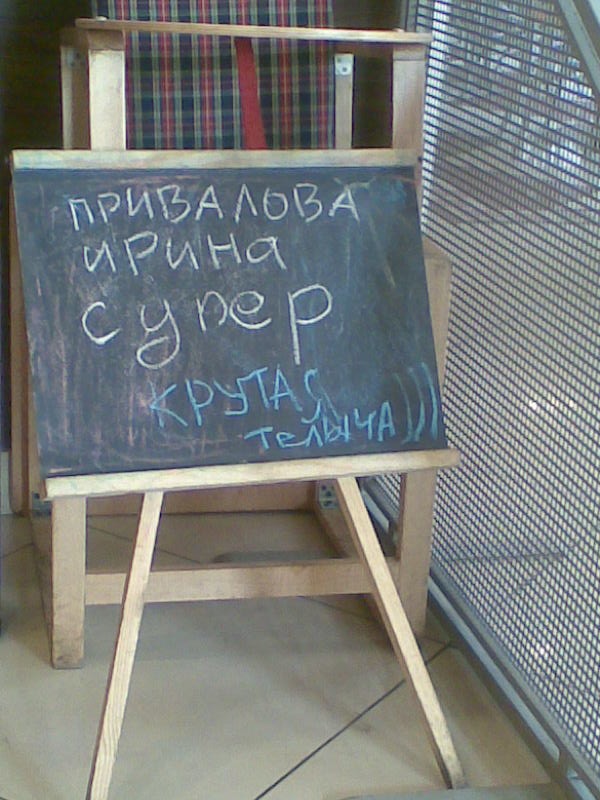 ПРИВАЛОВА
ирина
супер
КРУТАЯ
телыЧА)))